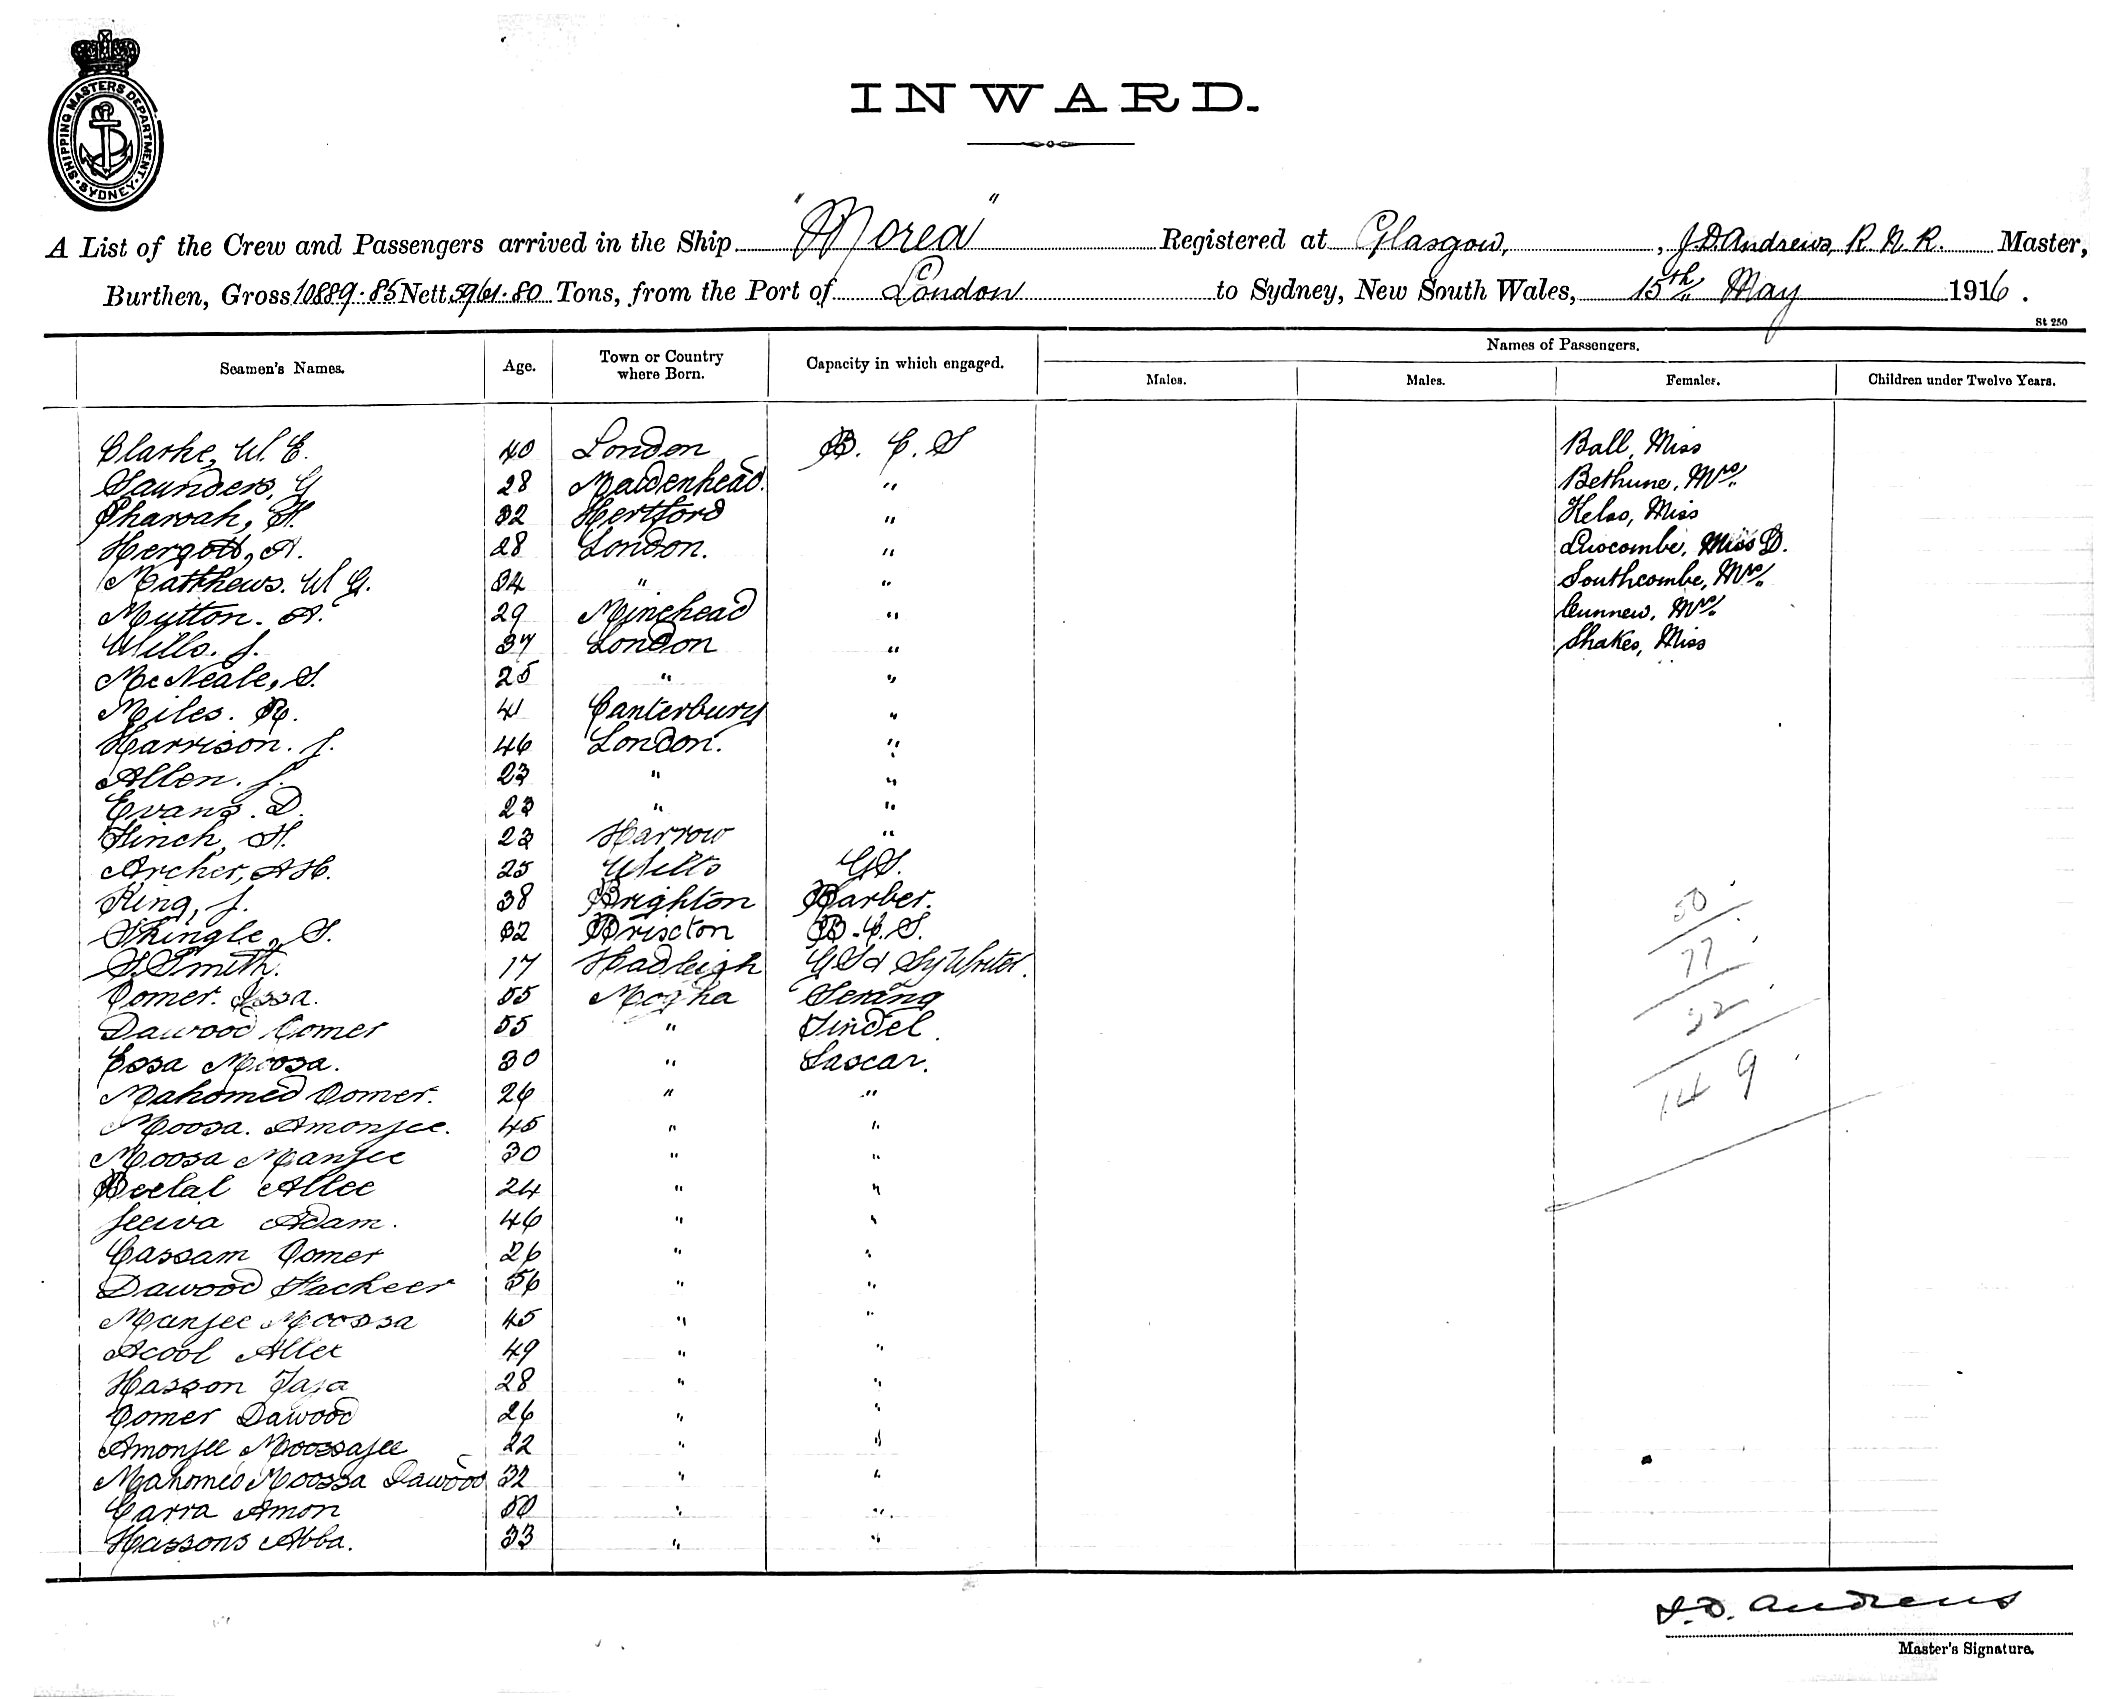 SHIPPING MASTERS DEPARTMENT. SYDNEY
INWARD.
A List of the Crew and Passengers arrived in the Ship "Morea" Registered at Glasgow, , J.D. Andrews, R.N.R. Master,
Burthen, Gross 10889.85 Nett 5961.80 Tons, from the Port of London to Sydney, New South Wales, 15th May 1916.
St 250
Seamen's Names. Age. Town or Country where Born. Capacity in which engaged. Names of Passengers.
Males. Males. Females. Children under Twelve Years.
Clarke, W. E. 40 London B. C. S Ball, Miss
Saunders, G 28 Maidenhead. " Bethune, Mrs.
Pharoah, H. 32 Hertford " Kelso, Miss
Hergott, A. 28 London. " Luscombe, Miss D.
Matthews. W G. 34 " " Southcombe, Mrs.
Mutton. A. 29 Minehead " Cunnew, Mrs.
Wills. J. 37 London " Shakes, Miss
McNeale, S. 25 " "
Miles. R. 41 Canterbury "
Harrison. J. 46 London. "
Allen. J. 23 " "
Evans. D. 23 " "
Finch, H. 23 Harrow "
Archer, A H. 25 Wilts G.S.
King, J. 38 Brighton Barber.
Shingle, S. 32 Brixton B.C.S.
S. Smith. 17 Hadleigh GS & Sy Writer.
Oomer. Issa. 55 Mogha Serang
Dawood Oomer 55 " Tindel.
Essa Moosa. 30 " Lascar.
Mahomed Oomer. 26 " "
Moosa. Amonjee. 45 " "
Moosa Manjee 30 " "
Beelal Allee 24 " "
Jeewa Adam. 46 " "
Cassam Oomer 26 " "
Dawood Fackeer 56 " "
Manjee Moossa 45 " "
Acool Allee 49 " "
Hasson Jaja 28 " "
Oomer Dawood 26 " "
Amonjee Moossajee 22 " "
Mahomed Moossa Dawood 32 " "
Carra Amon 50 " "
Hassons Abba. 33 " "
50
77
22
149
J.D. Andrews
Master's Signature.